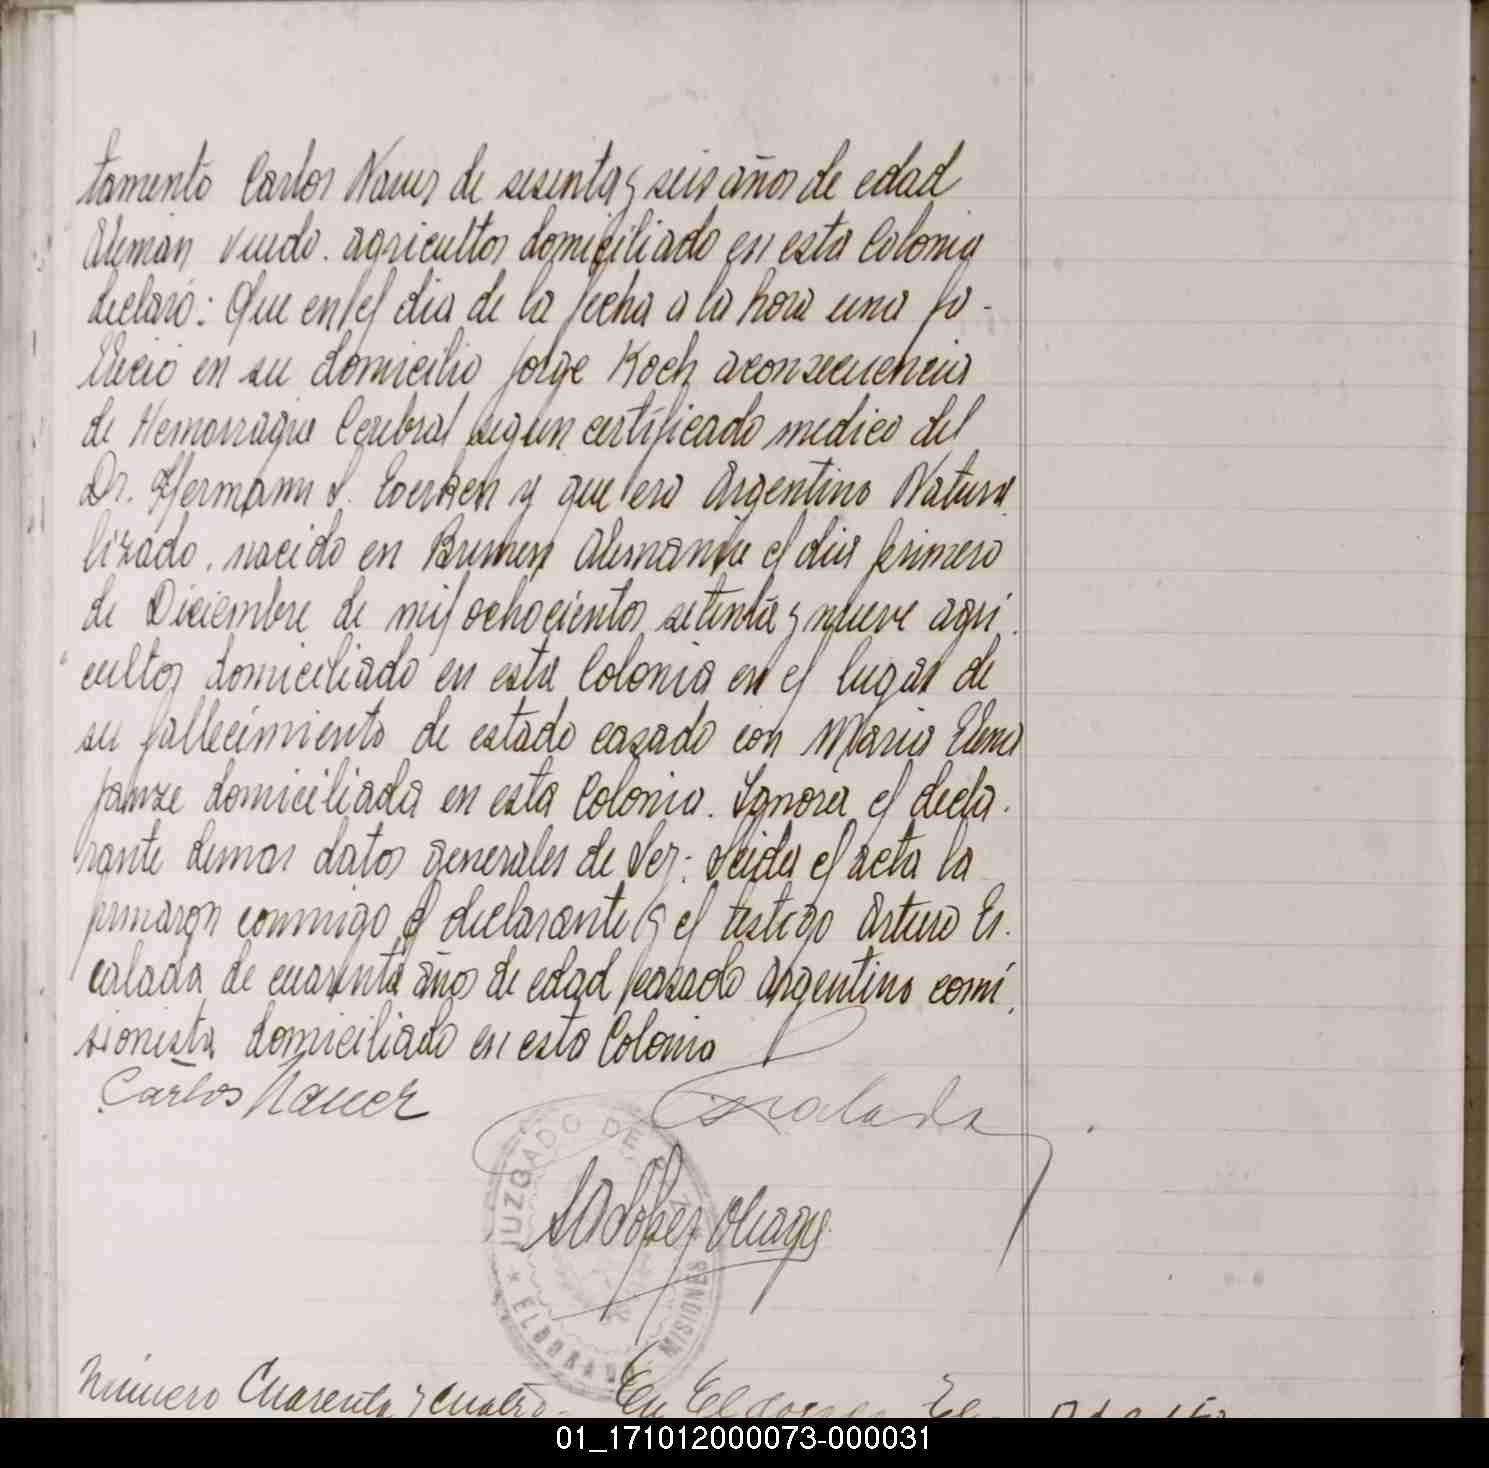 tamento Carlos Nauer de sesenta y seis años de edad
Aleman viudo. agricultor domiciliado en esta Colonia
declaró: Que en el dia de la fecha a la hora una fa-
llecio en su domicilio Jorge Koch aconsecuencia
de Hemorragia Cerebral segun certificado medico del
Dr. Hermann S. y que era Argentino Natura
lizado, nacido en Bremen Alemania el dia primero
de Diciembre de mil ochocientos setenta y nueve agri
cultor domiciliado en esta Colonia en el lugar de
su fallecimiento de estado casado con Maria Elena
domiciliada en esta Colonia. Ignora el decla.
rante demas datos generales de Ley: Leida el acta la
firmaron conmigo el declarante y el testigo Arturo Es.
calada de cuarenta años de edad casado Argentino comi
sionista domiciliado en esta Colonia
Carlos Nauer Escalada
JUZGADO DE PAZ
* ELDORADO MISIONES
Número Cuarenta y cuatro.- En Eldorado
01_171012000073-000031